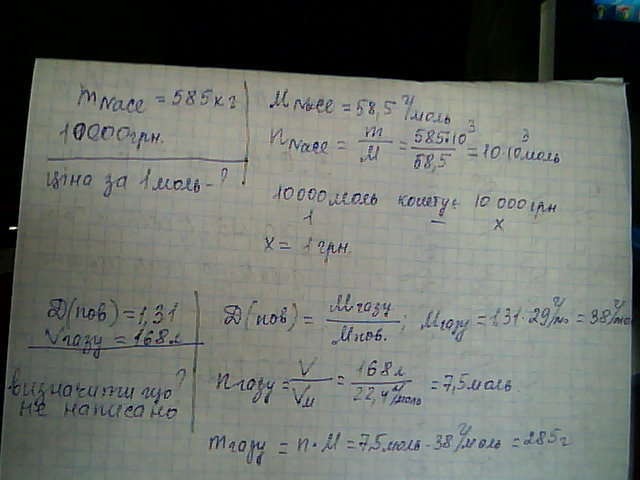 mNaCl = 585 кг
10000 грн.
ціна за 1 моль - ?
MNaCl = 58,5 г/моль
nNaCl = m/M = 585·10³/58,5 = 10·10³ моль
10000 моль коштує 10 000 грн
1 x
x = 1 грн
D(пов) = 1,31
Vгазу = 168 л
визначити що ?
не написано
D(пов) = Mгазу/Mпов. ; Mгазу = 1,31·29 г/мо = 38 г/мо
nгазу = V/VM = 168 л/22,4 л/моль = 7,5 моль
mгазу = n·M = 7,5 моль · 38 г/моль = 285 г